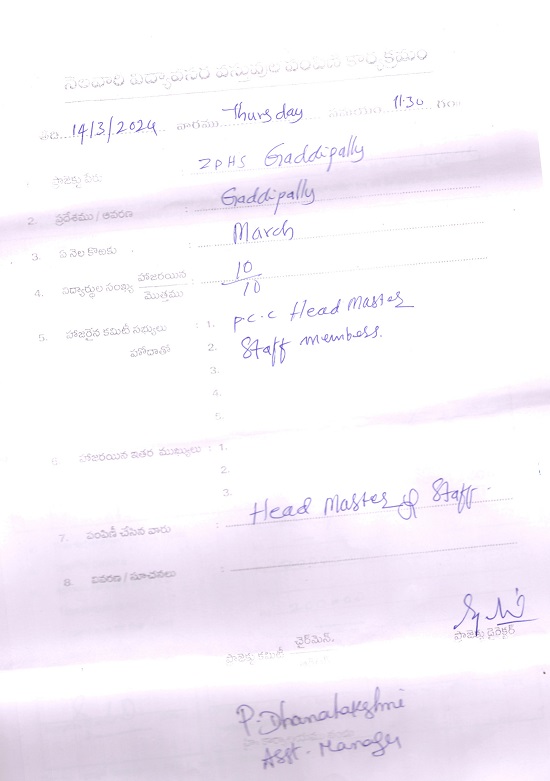 నెలవారి విద్యావసర వస్తువుల పంపిణీ కార్యక్రమం
తేది...14/3/2024 వారము...Thursday సమయం...11.30 గం॥
1. ప్రాజెక్టు పేరు : ZPHS Gaddipally
2. ప్రదేశము / ఆవరణ : Gaddipally
3. ఏ నెల కొఱకు : March
4. విద్యార్థుల సంఖ్య హాజరయిన / మొత్తము : 10/10
5. హాజరైన కమిటీ సభ్యులు : 1. P.C.C Head Master
హోదాతో 2. Staff members.
3.
4.
5.
6. హాజరయిన ఇతర ముఖ్యులు : 1.
2.
3.
7. పంపిణీ చేసిన వారు : Head Master & Staff.
8. వివరణ / సూచనలు :
ఛైర్మెన్.
ప్రాజెక్టు కమిటీ
ప్రాజెక్టు డైరెక్టర్
P. Dhanalakshmi
Asst. Manager